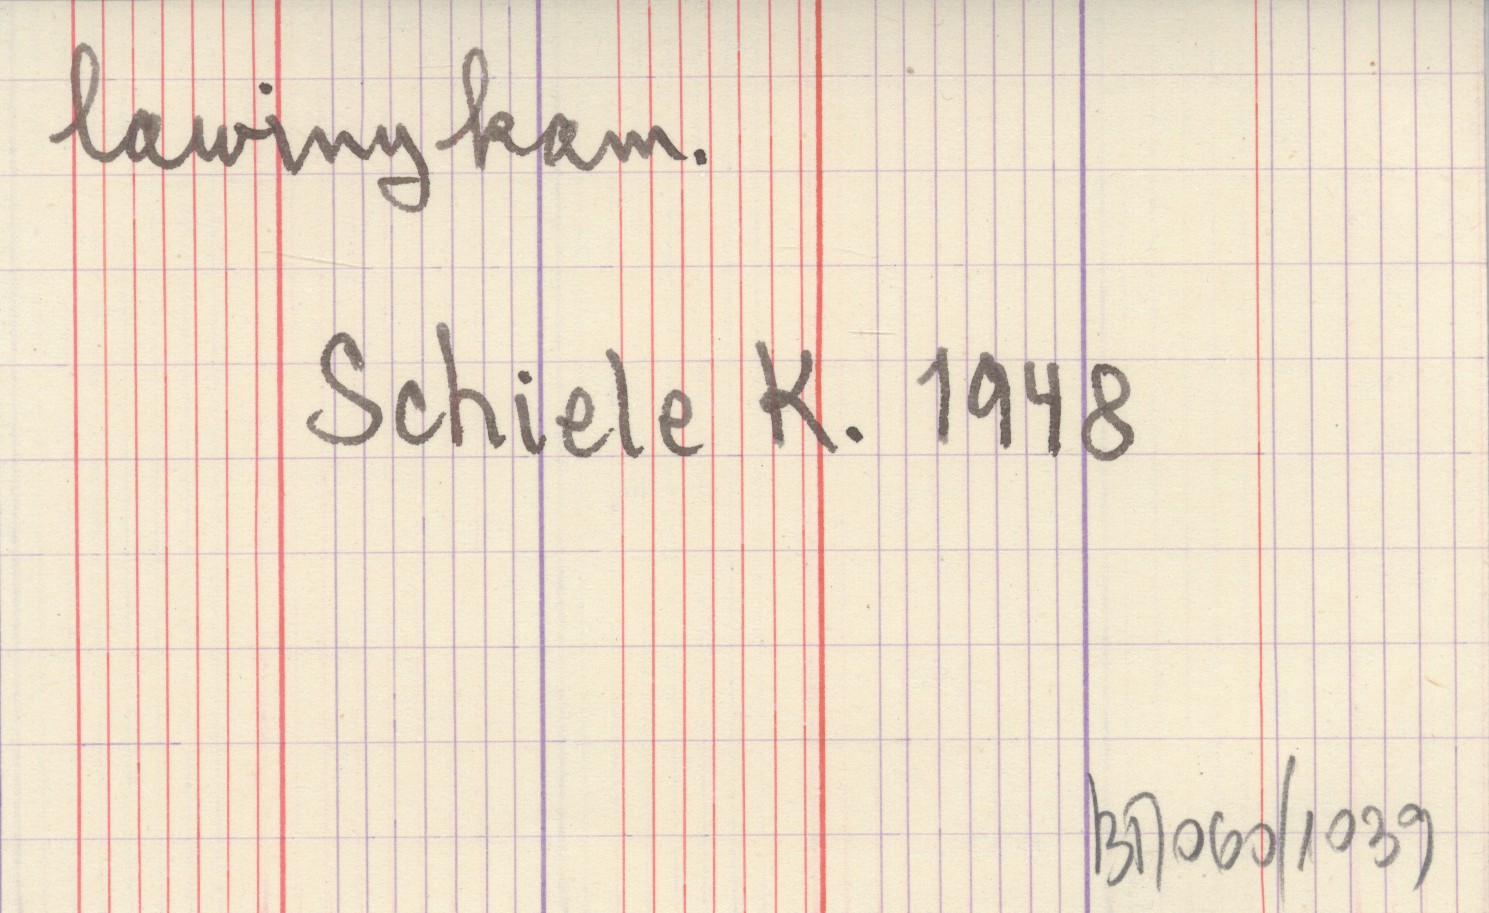 lawiny kam.
Schiele K. 1948
BD060/1039